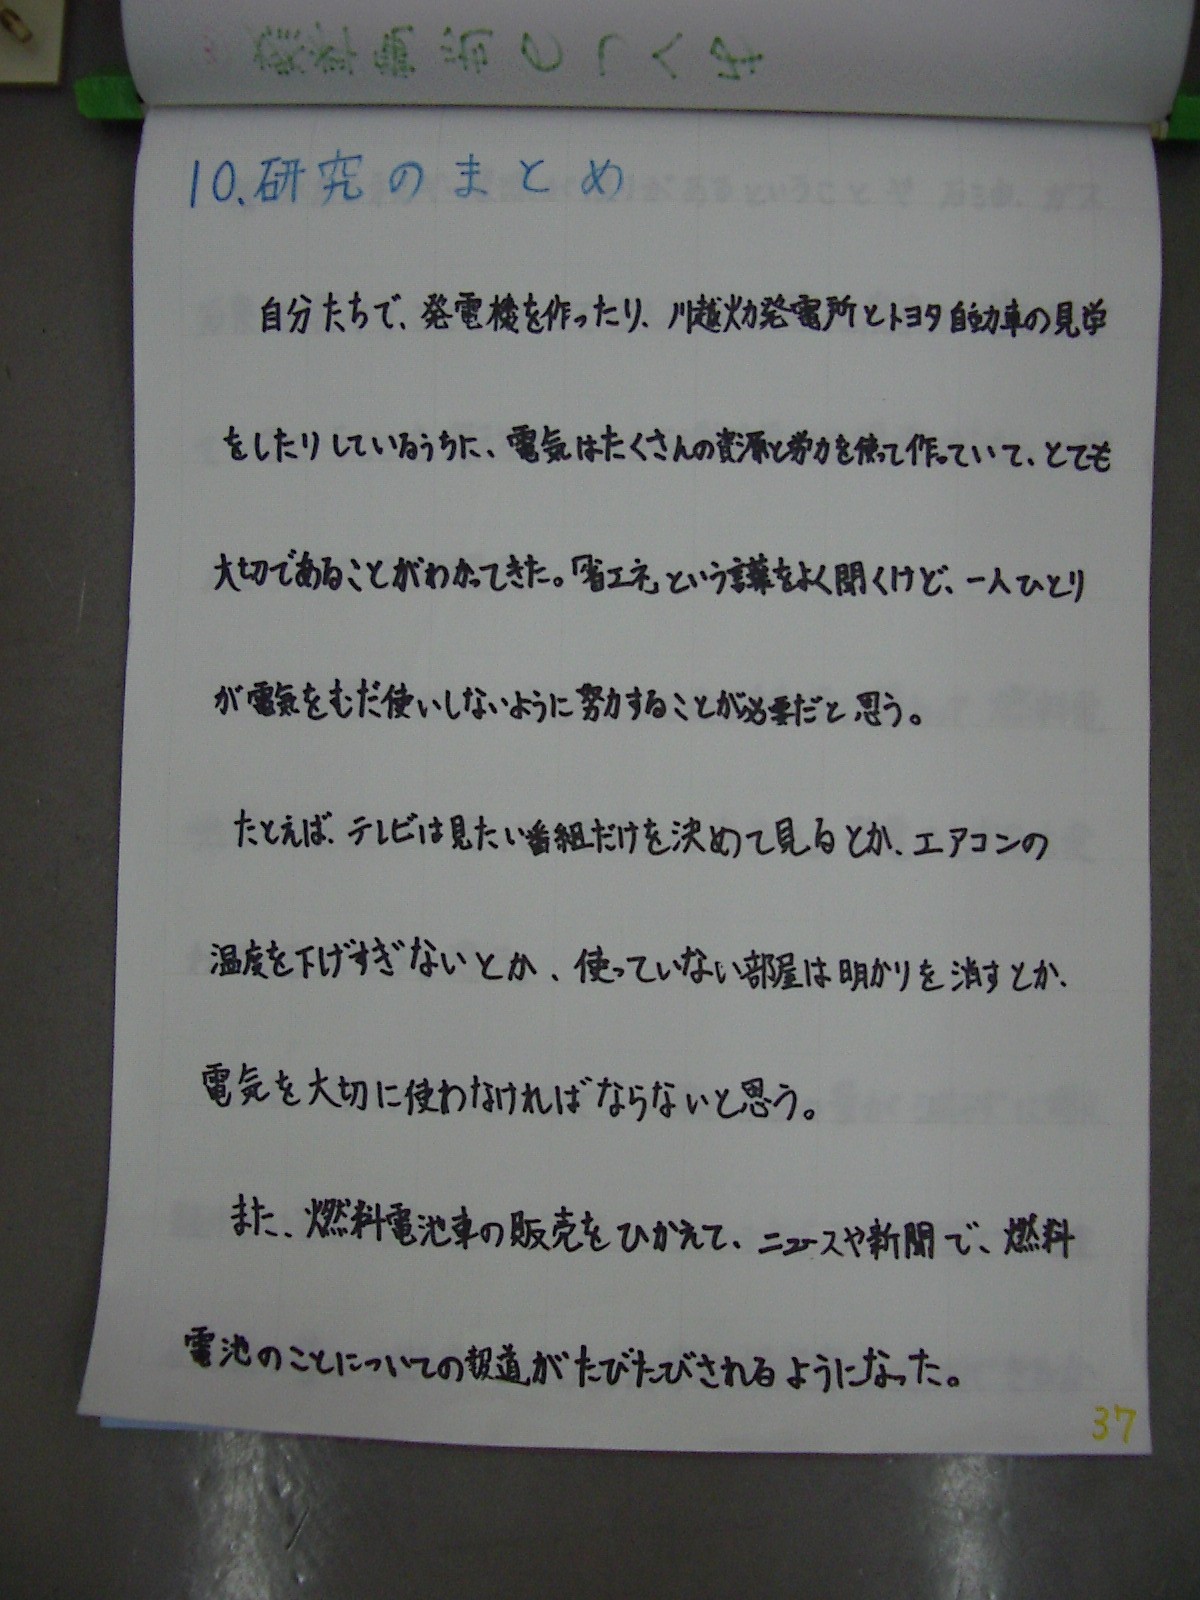 10.研究のまとめ
自分たちで、発電機を作ったり、川越火力発電所とトヨタ自動車の見学
をしたりしているうちに、電気はたくさんの資源と労力を使って作っていて、とても
大切であることがわかってきた。「省エネ」という言葉をよく聞くけど、一人ひとり
が電気をむだ使いしないように努力することが必要だと思う。
たとえば、テレビは見たい番組だけを決めて見るとか、エアコンの
温度を下げすぎないとか、使っていない部屋は明かりを消すとか、
電気を大切に使わなければならないと思う。
また、燃料電池車の販売をひかえて、ニュースや新聞で、燃料
電池のことについての報道がたびたびされるようになった。
37